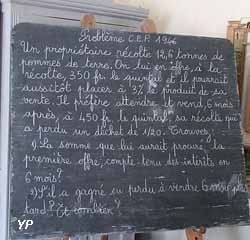 Problème C.E.P. 1946
Un propriétaire récolte 12,6 tonnes de
pommes de terre. On lui en offre, à la
récolte, 350 fr. le quintal et il pourrait
aussitôt placer à 3% le produit de sa
vente. Il préfère attendre et vend, 6 mois
après, à 450 fr. le quintal, sa récolte qui
a perdu un déchet de 1/20. Trouvez:
1) La somme que lui aurait procuré la
première offre, compte-tenu des intérêts en
6 mois?
2) S'il a gagné ou perdu à vendre 6 mois plus
tard? Et combien?
YP